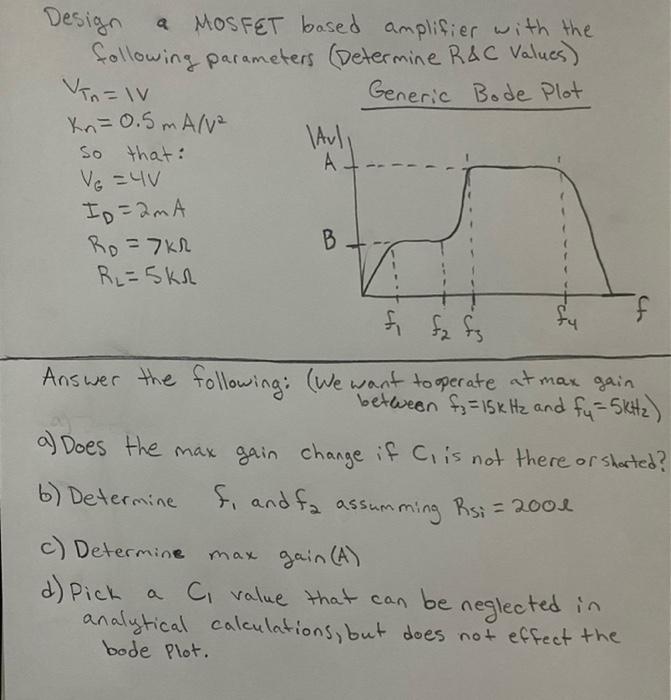 Design a MOSFET based amplifier with the
following parameters (Determine R&C Values)
V_Tn = 1V
Kn = 0.5 mA/V²
So that:
V_G = 4V
I_D = 2mA
R_D = 7KΩ
R_L = 5KΩ
Generic Bode Plot
|Av|
A
B
f₁ f₂ f₃ f₄ f
Answer the following: (We want to operate at max gain
between f₃=15KHz and f₄=5KHz)
a) Does the max gain change if C₁ is not there or shorted?
b) Determine f₁ and f₂ assumming Rsi = 200Ω
c) Determine max gain (A)
d) Pick a C₁ value that can be neglected in
analytical calculations, but does not effect the
bode Plot.